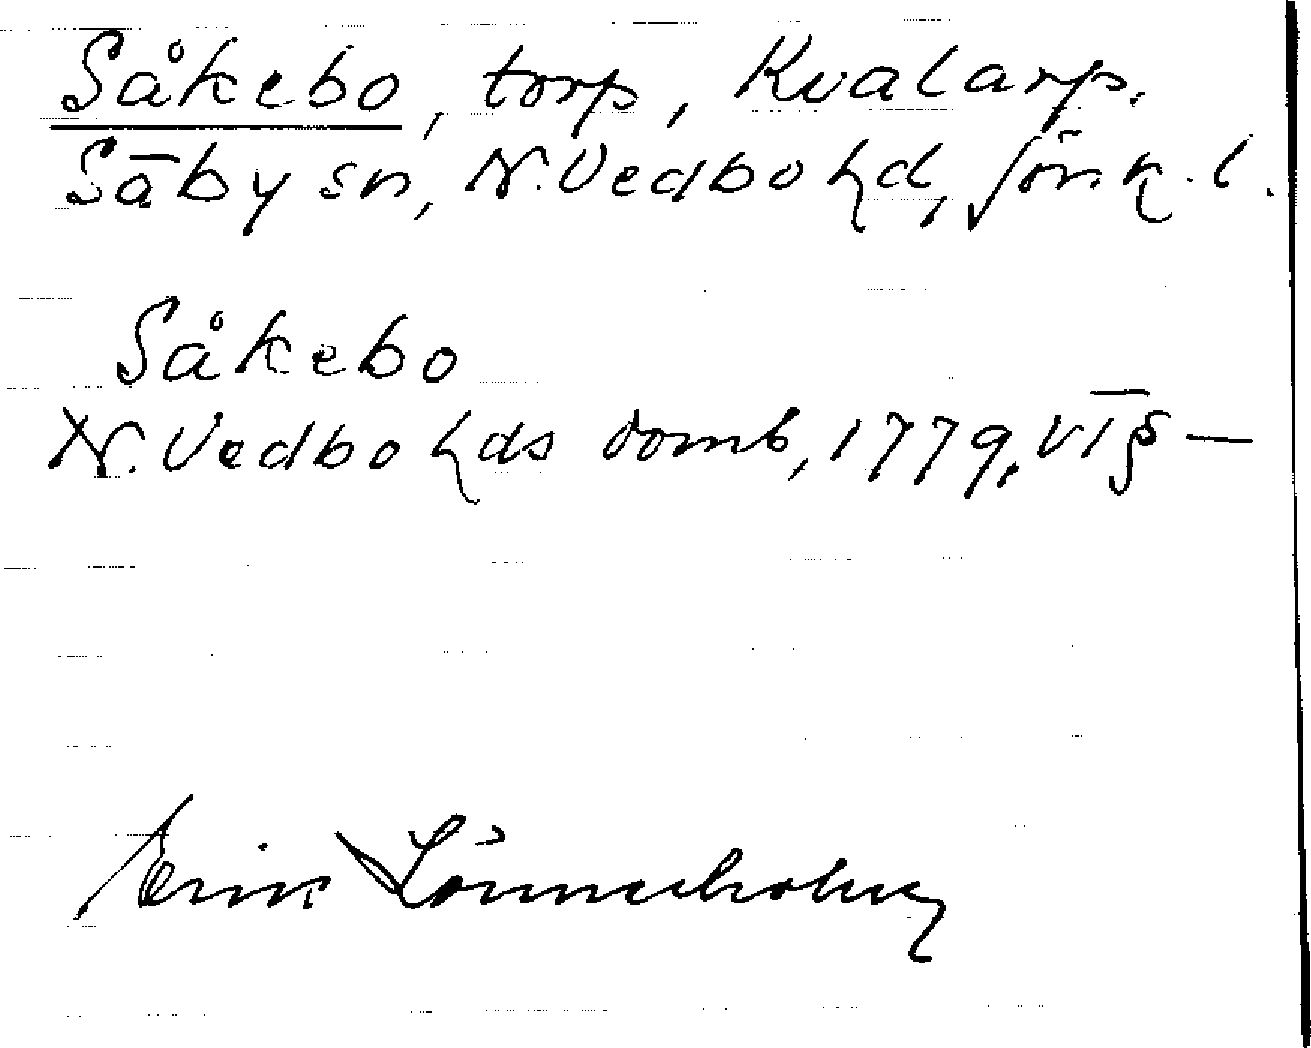 Såkebo, torp, Kvalarp.
Säby sn, N. Vedbo hd, Jönk. l.
Såkebo
N. Vedbo hds domb, 1779, VT § —
Erik Lönnerholm